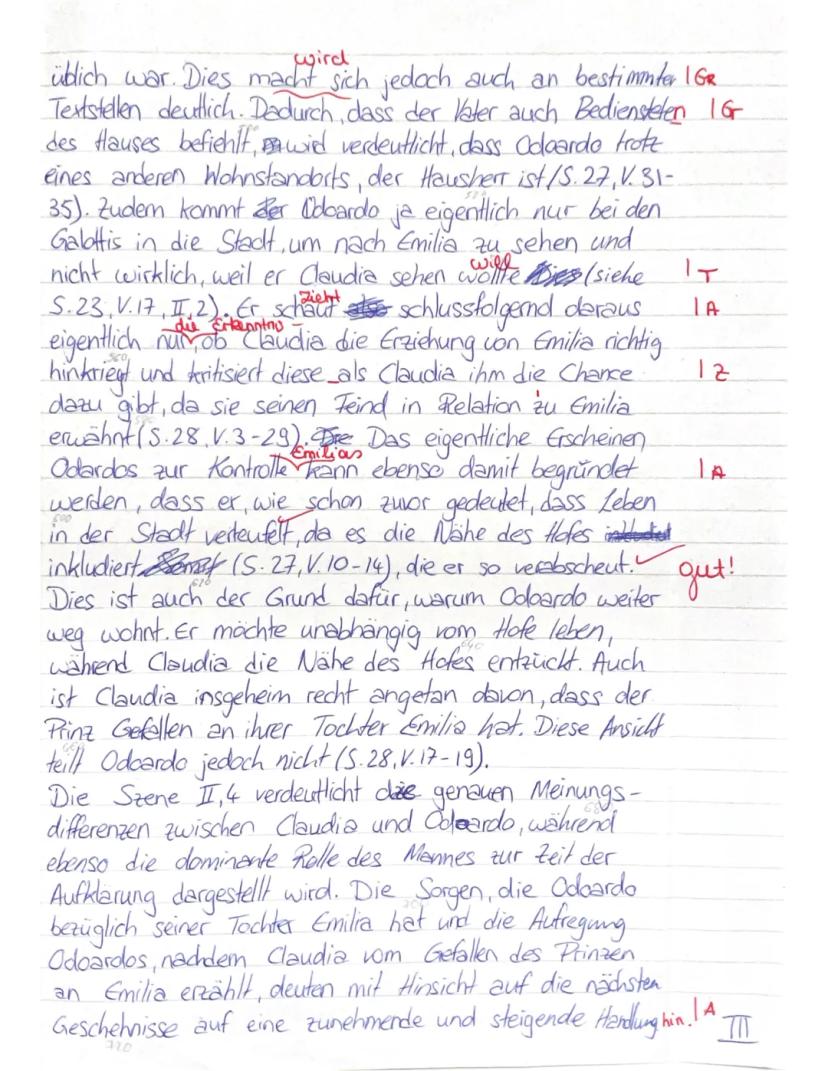 wird
üblich war. Dies macht sich jedoch auch an bestimmter |GR
Textstellen deutlich. Dadurch, dass der Vater auch Bediensteten |G
des Hauses befiehlt, wird verdeutlicht, dass Odoardo trotz
eines anderen Wohnstandorts, der Hausherr ist (S. 27, V. 31-
35). Zudem kommt Odoardo ja eigentlich nur bei den
Galottis in die Stadt, um nach Emilia zu sehen und
will
nicht wirklich, weil er Claudia sehen wollte (siehe |T
zieht
S. 23, V. 17, II,2). Er schaut schlussfolgernd daraus |A
die Erkenntnis
eigentlich nur, ob Claudia die Erziehung von Emilia richtig
hinkriegt und kritisiert diese als Claudia ihm die Chance |Z
dazu gibt, da sie seinen Feind in Relation zu Emilia
erwähnt (S. 28, V. 3-29). Das eigentliche Erscheinen
Emilias
Odardos zur Kontrolle kann ebenso damit begründet |A
werden, dass er, wie schon zuvor gedeutet, dass Leben
in der Stadt verteufelt, da es die Nähe des Hofes
inkludiert (S. 27, V. 10-14), die er so verabscheut. gut!
Dies ist auch der Grund dafür, warum Odoardo weiter
weg wohnt. Er möchte unabhängig vom Hofe leben,
während Claudia die Nähe des Hofes entzückt. Auch
ist Claudia insgeheim recht angetan davon, dass der
Prinz Gefallen an ihrer Tochter Emilia hat. Diese Ansicht
teilt Odoardo jedoch nicht (S. 28, V. 17-19).
Die Szene II,4 verdeutlicht die genauen Meinungs-
differenzen zwischen Claudia und Odoardo, während
ebenso die dominante Rolle des Mannes zur Zeit der
Aufklärung dargestellt wird. Die Sorgen, die Odoardo
bezüglich seiner Tochter Emilia hat und die Aufregung
Odoardos, nachdem Claudia vom Gefallen des Prinzen
an Emilia erzählt, deuten mit Hinsicht auf die nächsten
Geschehnisse auf eine zunehmende und steigende Handlung hin. |A III
720